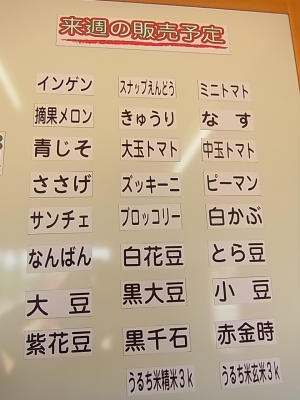 来週の販売予定
インゲン スナップえんどう ミニトマト
摘果メロン きゅうり なす
青じそ 大玉トマト 中玉トマト
ささげ ズッキーニ ピーマン
サンチェ ブロッコリー 白かぶ
なんばん 白花豆 とら豆
大豆 黒大豆 小豆
紫花豆 黒千石 赤金時
うるち米精米3k うるち米玄米3k